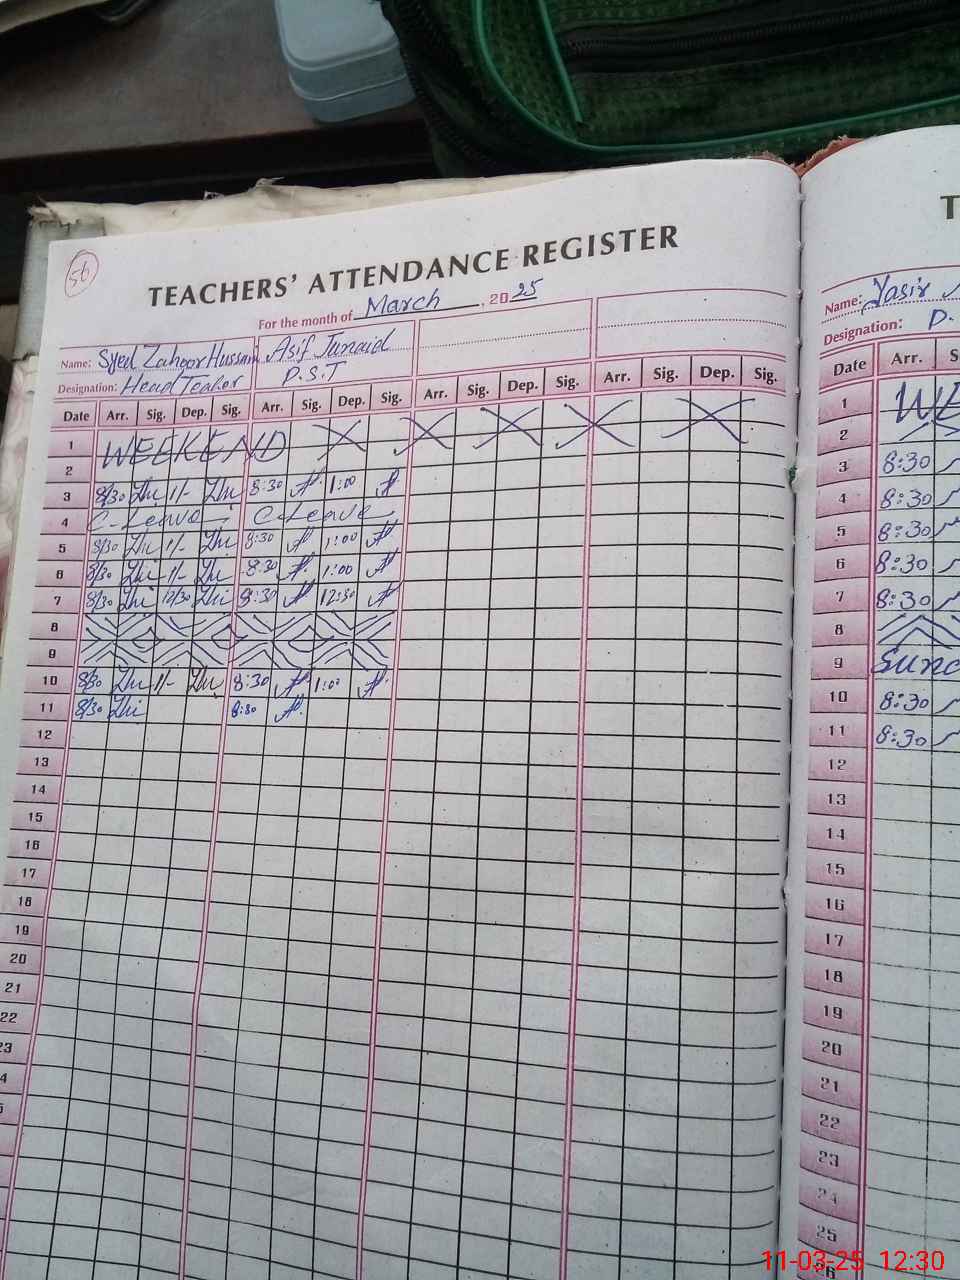 56
TEACHERS' ATTENDANCE REGISTER
For the month of March, 2025
Name: Syed Zahoor Hussain Asif Junaid
Designation: Head Teacher P.S.T
Date Arr. Sig. Dep. Sig. Arr. Sig. Dep. Sig. Arr. Sig. Dep. Sig. Arr. Sig. Dep. Sig.
1 WEEKEND
2
3 8/30 1/- 8:30 1:00
4 C-Leave C-Leave
5 8/30 1/- 8:30 1:00
6 8/30 1/- 8:30 1:00
7 8/30 12/30 8:30 12:30
8
9
10 8/30 1/- 8:30 1:00
11 8/30 8:30
12
13
14
15
16
17
18
19
20
21
22
23
4
T
Name: Yasir
Designation: P.
Date Arr. S
1 WE
2
3 8:30
4 8:30
5 8:30
6 8:30
7 8:30
8
9 Sund
10 8:30
11 8:30
12
13
14
15
16
17
18
19
20
21
22
23
24
25
26
11-03-25 12:30